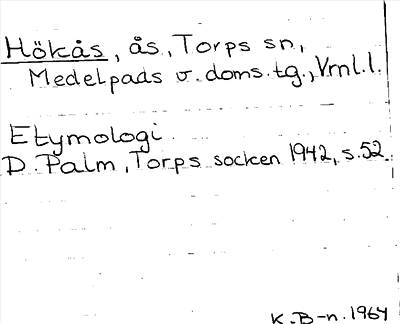 Hökås, ås, Torps sn,
Medelpads v. doms.tg., Vrnl.l.
Etymologi
D. Palm, Torps socken 1942, s.52.
K.B-n. 1964